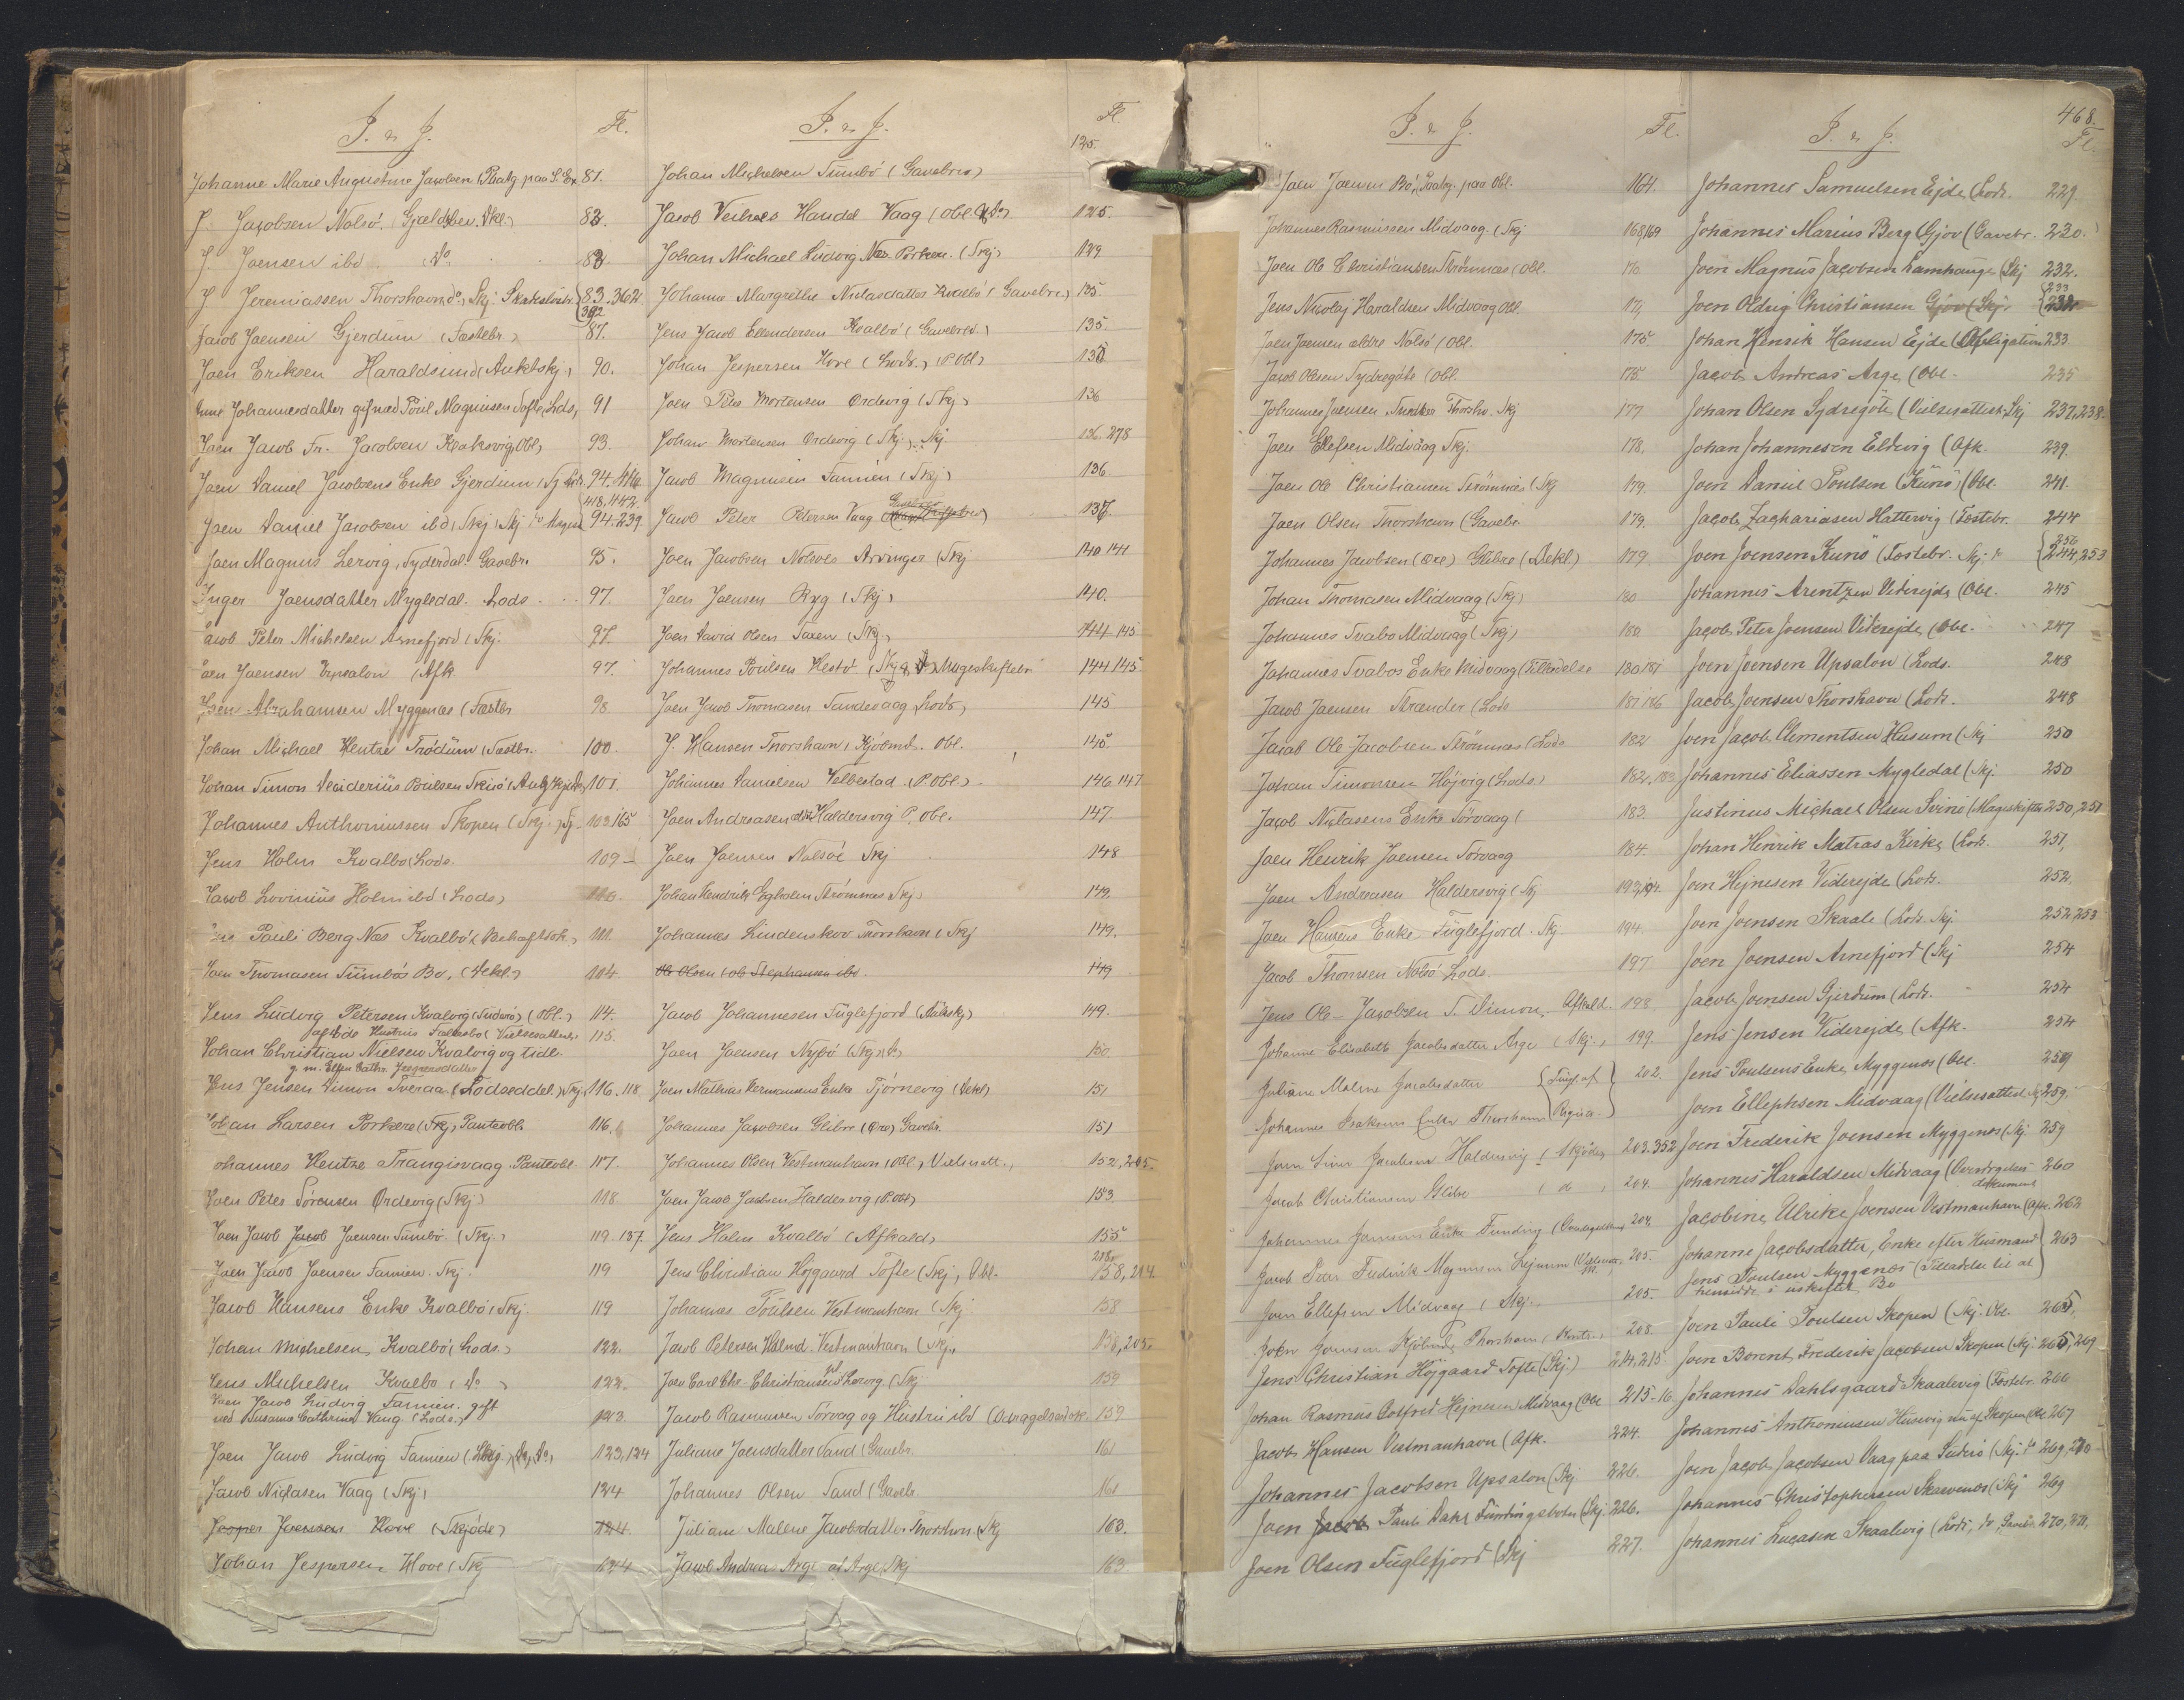 I. & J.
Fl.
Johanne Marie Augustine Jacobsen (Paateg. paa S. Ex. 81.
J. Jacobsen Nolsö. (Gjældsbev. Dkl.) 82.
J. Joensen ibd. Do. 83.
J. Jeremiassen Thorshavn, do, Skj. 83. 362.
392
Jacob Joensen Gjerdum (Fæstebr.) 87.
Joen Eriksen Haraldsund (Auktskj.) 90.
Johannesdatter gift med Poul Magnusen Tofte, Lods, 91
Joen Jacob Fr. Jacobsen Klaksvig, Obl, 93.
Joen Daniel Jacobsens Enke Gjerdum 94. 416.
418, 442.
Joen Daniel Jacobsen ibd, Skj, Skj 94. 239.
Joen Magnus Lervig, Syderdal. Gavebr. 95.
Inger Joensdatter Mygledal. Lods. 97.
Jacob Peter Mishelsen Arnefjord (Skj. 97.
Joen Joensen Upsalon (Afk 97.
Joen Abrahamsen Myggenæs (Fæstbr 98
Johan Michael Hentze Frödüm (Fæstbr. 100.
Johan Simon Desiderius Poulsen 101.
Johannes Anthoniussen Skopen (Skj. 103. 165
Jens Holm Kvalbö (Lods. 109
Jacob Lovinius Holm ibd (Lods, 110.
Jens Pauli Berg Næs Kvalbö 111.
Joen Thomasen Sumbös Bo, (Dekl.) 104.
Jens Ludvig Petersen Kvalvig, Suderö, (Obl.) 114.
afdøde Hustrus 115.
Johan Christian Nielsen Kvalvig og tidl.
g. m. Elsen Cathr. Jespersdatter
Jens Jensen Dimon Tveraa (Lodseddel.) Skj. 116. 118
Johan Larsen Porkere (Skj, Panteobl. 116.
Johannes Hentze Trangisvaag Panteobl. 117.
Joen Peter Sörensen Ordevig (Skj) 118.
Joen Jacob Jacob Joensen Sumbö. (Skj. 119. 137.
Joen Jacob Joensen Famien. Skj. 119
Jacob Hansens Enke Kvalbö, Skj. 119
Johan Michelsen, Kvalbö (Lods.) 122.
Jens Michelsen Kvalbö, do 122.
Joen Jacob Ludvig Famien. gift
ved Susanne Cathrine Vaag. (Lods.) 123.
Joen Jacob Ludvig Famien 123, 124
Jacob Niclasen Vaag (Skj) 124
Jesper Joensen Hove (Skjöde) 124.
Johan Jespersen Hove (Skj 124
I. & J.
Fl.
Johan Michelsen Sumbö (Gavebrev) 125.
Jacob Veihes Handel Vaag (Obl. & Do) 125.
Johan Michael Ludvig Næs Porkere. (Skj) 129
Johanne Margrethe Niclasdatter Kvalbö (Gavebr.) 135.
Jens Jacob Ellendersen Kvalbö (Gavebr.) 135.
Johan Jespersen Hove (Lods.) (P. Obl) 135
Joen Peter Mortensen Ordevig (Skj) 136
Johan Mortensen Ordevig (Skj.) Skj. 136. 278
Jacob Magnusen Famien (Skj) 136
Jacob Peter Petersen Vaag 137.
Joen Jacobsen Nolsoes Arvinger (Skj 140 141
Joen Joensen Ryg (Skj) 140.
Joen David Olsen Saxen (Skj, 144 145
Johannes Poulsen Hestö (Skj & Do) Mageskiftebr 144 145
Joen Jacob Thomasen Sandevaag, Lods, 145
J. Hansen Thorshavn, Kjöbmd. Obl. 145.
Johannes Danielsen Velbestad (P. Obl.) 146 147
Joen Andreasen Haldersvig P. Obl. 147.
Joen Joensen Nolsöe Skj 148
Johan Hendrik Egholm Strömnæs Skj 149.
Johannes Lindenskov Thorshavn (Skj 149.
Ole Olsen (ob Stephansen ibd. 149
Jacob Johannesen Fuglefjord (Auktskj.) 149.
Joen Joensen Nybö (Skj) 150.
Joen Mathias Hermansens Enke Tjörnevig (Dekl) 151
Johannes Jacobsen Glibre (Öre) Gavebr. 151
Johannes Olsen Vestmanhavn (Obl, Vielsesatt., 152, 205.
Joen Jacob Joensen Haldersvig (P. Obl) 153
Jens Holm Kvalbö (Afkald) 155
Jens Christian Höjgaard Tofte (Skj, Obl. 158, 214.
Johannes Poulsen Vestmanhavn (Skj. 158
Jacob Petersen Holmd. Vestmanhavn (Skj. 158, 205.
Joen Carl Chr. Christiansens Lervig. (Skj 159
Jacob Rasmussen Sörvaag og Hustru ibd 159
Juliane Joensdatter Sand (Gavebr. 161
Johannes Olsen Sand (Gavebr. 161
Juliane Malene Jacobsdatter Thorshvn. (Skj 163.
Jacob Andreas Arge af Arge, Skj 163.
I. & J.
Fl.
Joen Joensen Bö, Paateg. paa Obl. 164.
Johannes Rasmussen Midvaag. (Skj 168, 169
Joen Ole Christiansen Strömnæs (Obl. 170.
Jens Nicolaj Haraldsen Midvaag Obl. 171.
Joen Joensen ældre Nolsö (Obl. 175
Jacob Olsen Sydregöte (Obl. 175.
Johannes Joensen Thorshv. Skj 177
Joen Ellefsen Midvaag Skj. 178.
Joen Ole Christiansen Strömnæs (Skj 179.
Joen Olsen Thorshavn (Gavebr. 179.
Johannes Jacobsen (Öre) Glibre (Dekl.) 179
Johan Thomasen Midvaag (Skj) 180
Johannes Tvabo Midvaag (Skj) 180
Johannes Tvabos Enke Midvaag (Tilladelse 180 181
Jacob Joensen Strænder (Lods 181 186
Jacob Ole Jacobsen Strömnæs (Lods 182
Johan Simonsen Höjvig (Lods.) 182, 183
Jacob Niclasens Enke Sörvaag ( 183.
Joen Henrik Joensen Sörvaag 184.
Joen Andreasen Haldersvig (Skj 193, 194.
Joen Hansens Enke Fuglefjord. Skj 194.
Jacob Thomsen Nolsö Lods. 197
Jens Ole Jacobsen S. Dimon, Afkald. 198
Johanne Elisabeth Jacobsdatter Arge (Skj., 199.
Juliane Malene Jacobsdatter 202.
Johannes Isaksens Enke Thorshavn
Joen Sivar Jacobsen Haldersvig (Skjöde, 203. 352
Jacob Christiansen Glibre (do, 204.
Johannes Joensens Enke Funding 204.
Jacob Peter Fredrik Magnussen Lejnum 205.
Joen Ellefsen Midvaag (Skj. 205.
Joen Joensen Kjöbmd. Thorshavn (Kontr., 208.
Jens Christian Höjgaard Tofte (Skj) 214, 215.
Johan Rasmus Gotfred Hejnesen Midvaag (Obl 215-16.
Jacob Hansen Vestmanhavn (Afk. 224.
Johannes Jacobsen Upsalon (Skj 226.
Joen Jacob Pauli Dahl Fundingsbotn (Skj. 226.
Joen Olsen Fuglefjord (Skj 227.
468.
I. & J.
Fl.
Johannes Samuelsen Ejde (Lods. 229
Johannes Marius Berg Gjov (Gavebr. 230.
Joen Magnus Jacobsen Lamhauge (Skj 232.
Joen Oldrig Christiansen Gjov (Skj. 233
Johan Henrik Hansen Ejde (Obligation 233.
Jacob Andreas Arge (Obl. 235
Johan Olsen Sydregöte (Vielsesattest, Skj 237, 238.
Johan Johannesen Eldevig (Afk. 239.
Joen Daniel Poulsen (Kunö) (Obl. 241.
Jacob Zachariasen Hattervig (Fæstebr. 244
Joen Joensen Kunö (Fæstebr. Skj. do 244, 253
256
Johannes Arentzen Viderejde (Obl. 245
Jacob Peter Joensen Viderejde (Obl. 247
Joen Joensen Upsalon (Lods. 248
Jacob Joensen Thorshavn (Lods. 248
Joen Jacob Clementsen Husum (Skj 250
Johannes Eliassen Mygledal (Skj. 250
Justinus Michael Olsen Svinö (Mageskifte 250, 251
Johan Henrik Matras Kirke (Lods. 251,
Joen Hejnesen Viderejde (Lods. 252.
Joen Joensen Skaale (Lods. Skj. 252, 253
Joen Joensen Arnefjord (Skj 254
Jacob Joensen Gjerdum (Lods. 254
Jens Jensen Viderejde (Afk. 254
Jens Poulsens Enke, Myggenæs (Obl. 259
Joen Ellephsen Midvaag (Vielsesattest, Skj 259.
Joen Frederik Joensen Myggenæs (Skj. 259
Johannes Haraldsen Midvaag (Overdragelses- 260
dokument
Jacobine Ulrike Joensen Vestmanhavn (Afk. 262
Johanne Jacobsdatter, Enke efter Husmand 263
Jens Poulsen Myggenæs (Tilladelse til at
hensidde i uskiftet Bo
Joen Pauli Poulsen Skopen (Skj. Obl. 265,
Joen Berent Frederik Jacobsen Skopen (Skj. 265, 269
Johannes Dahlsgaard Skaalevig (Fæstebr. 266
Johannes Anthoniusen Husevig nu af Skopen (Obl 267
Joen Jacob Jacobsen Vaag paa Suderö (Skj. do 269, 270
Johannes Christophersen Skarvenæs (Skj 269
Johannes Lucasen Skaalevig (Lods, do, Gavebr. 270, 271,